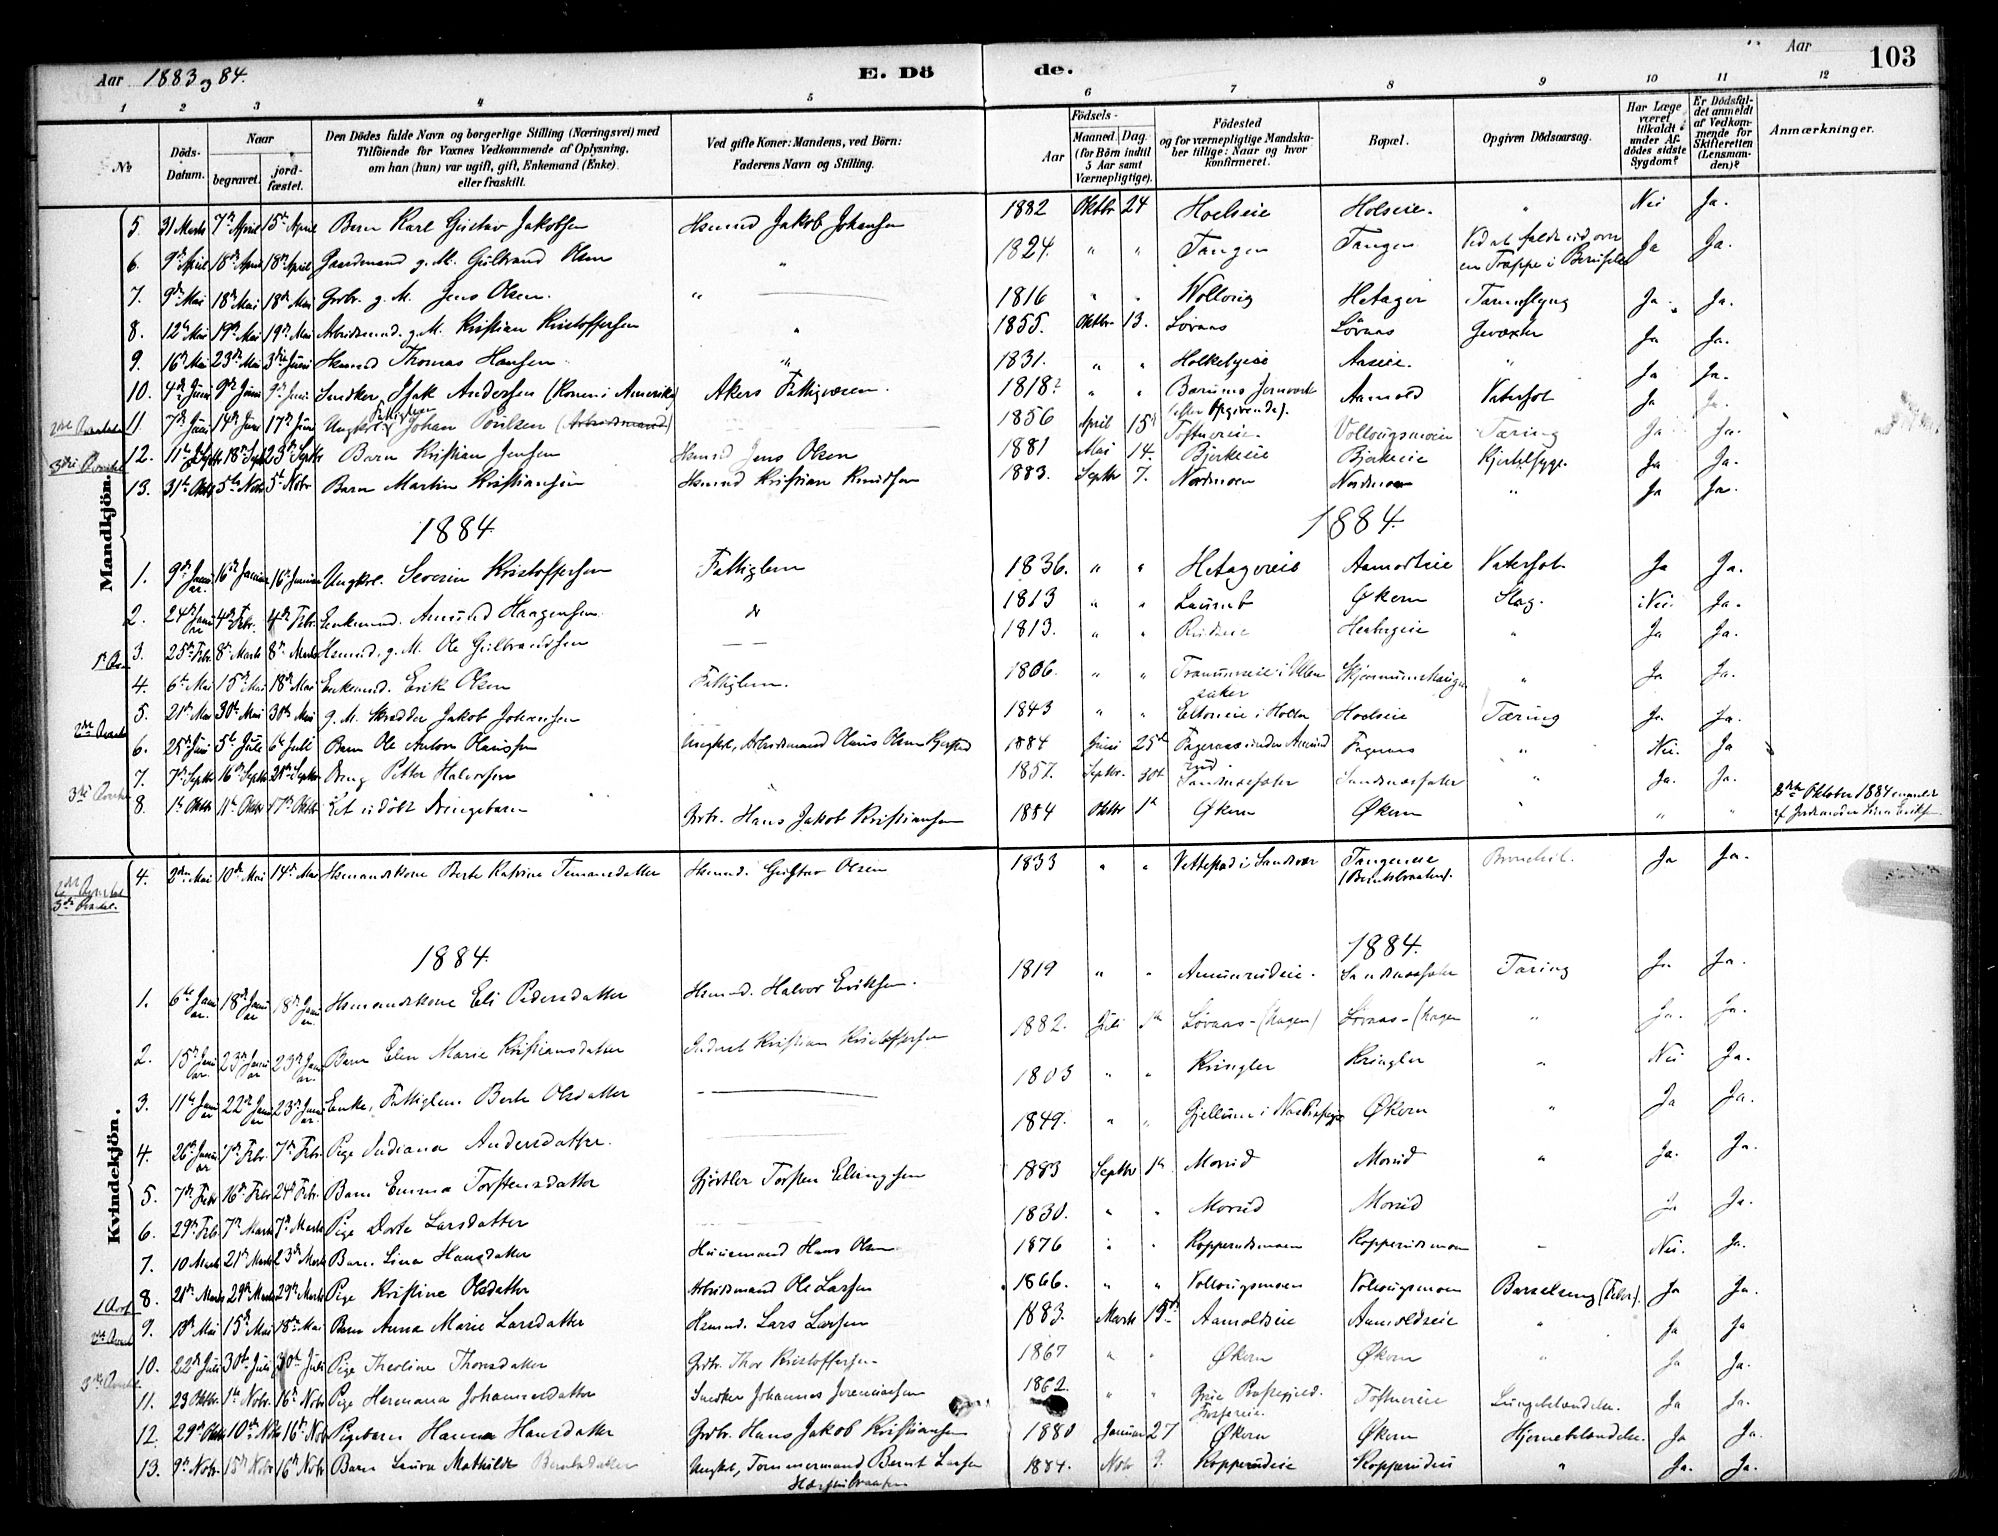 Aar 1883 og 84. E. Dö de. Aar 103
1 2 3 4 5 6 7 8 9 10 11 12
No Döds-Datum. Naar begravet. jord-fæstet. Den Dödes fulde Navn og borgerlige Stilling (Næringsvei) med Tilföiende for Voxnes Vedkommende af Oplysning, om han (hun) var ugift, gift, Enkemand (Enke) eller fraskilt. Ved gifte Koner: Mandens, ved Börn: Faderens Navn og Stilling. Födsels- Aar Maaned. Dag. (for Börn indtil 5 Aar samt Værnepligtige). Födested og for værnepligtige Mandska-ber tillige: Naar og hvor konfirmeret. Bopæl. Opgiven Dödsaarsag. Har Læge været tilkaldt under Af-dödes sidste Sygdom? Er Dödsfal-det anmeldt af Vedkom-mende for Skifteretten (Lensman-den)? Anmærkninger.
Mandkjön.
5. 31 Marts 7de April 15de April Barn Karl Gustav Jakobsen Hsmnd Jakob Johansen 1882 Oktbr 24 Hoelseie Holseie. " Nei Ja.
6. 9de April 18de April 18de April Gaardmand g. M. Gulbrand Olsen " 1824. " " Tangen Tangen Ved at falde ud over en Trappe i Ja Ja.
7. 9de Mai 18de Mai 18de Mai Grbr. g. M. Jens Olsen. " 1816 " " Vollaug Hetager Tarmslyng Ja Ja.
8. 12te Mai 19de Mai 19de Mai Arbeidsmnd. g. M. Kristian Kristoffersen " 1855. Oktbr 13. Løvaas Løvaas Ja Ja.
9. 16de Mai 23de Mai 3die Juni Hsmnd Thomas Hansen " 1831. " " Aaseie. " Ja Ja.
10. 4de Juni 9de Juni 9de Juni Snedker Isak Andersen (Konen i Amerika) Akers Fattigvæsen. 1818? " " Bærums Jernverk (efter Opgivende). Aamold Vatersot Ja Ja.
11. 7de Juni 14de Juni 17de Juni Ungkrl Fattiglem Johan Poulsen (Arbeidsmand) 1856 April 15de Toftnereie. Vollaugsmoen Tæring Ja Ja.
12. 11te Septbr 18de Septbr 23de Septbr Barn Kristian Jensen Hsmnd Jens Olsen 1881 Mai 14. Bjerkeeie Bjerkeeie Ja Ja.
13. 31te Oktbr 5te Novbr 5te Novbr Barn Martin Kristiansen Hsmnd Kristian Knudsen 1883. Septbr 7. Nordmoen Nordmoen " Ja Ja.
1884 1884.
1. 9de Januar 16de Januar 16de Januar Ungkrl. Severin Kristoffersen Fattiglem 1836. " " Hetagereie Aamodteie Vatersot Ja Ja.
2. 24de Januar 4de Febr. 4de Febr. Enkemnd. Amund Haagensen. do 1813 " " Økern Slag. Nei. Ja.
3. 25de Febr. 8de Marts 8de Marts Hsmnd. g. M. Ole Gulbrandsen 1813. " " " Ja Ja.
4. 6te Mai 15de Mai 18de Mai Enkemnd. Erik Olsen Fattiglem. 1806. " " i Ullensaker " Ja Ja.
5. 21de Mai 30te Mai 30te Mai g. M. Skrædder Jakob Johansen 1843 " " Hoelseie Tæring Ja Ja.
6. 25de Juni 5te Juli 6te Juli Barn Ole Anton Olaussen Ungkrl, Arbeidsmand Olaus Olsen 1884 Juni 25de Fageraas under Fageraas " Nei. Ja
7. 7de Septbr 16de Septbr 21de Septbr Dreng Petter Halvorsen 1857. Septbr. 30te Sandnæssæter Sandnæssæter " Ja. Ja.
8. 1ste Oktbr 11te Oktbr 17de Oktbr Et udöbt Drengebarn Grbr. Hans Jakob Kristiansen 1884 Oktbr 1ste Økern Økern " " " Oktober 1884 anmeldt af Jordemoder Lina
Kvindekjön.
4. 2den Mai 10de Mai 14de Mai Hsmandskone Berte Katrine Hsmnd. Gustav Olsen 1833 " " Vettestad i Sandsvær Tangeneie Bronchit. Ja Ja.
1884. 1884.
1. 6te Januar 18de Januar 18de Januar Hsmandskone Eli Pedersdatter Hsmnd. Halvor Eriksen. 1819 " " Sandnæssæter Tæring Ja Ja.
2. 15de Januar 23de Januar 23de Januar Barn Elen Marie Kristiansdatter Inderst Kristian Kristoffersen 1882. Juli 1ste Løvaas-(hagen) Løvaas-(hagen " Ja. Ja.
3. 11te Januar 22de Januar 23de Januar Enke, Fattiglem Berte Olsdatter 1803 " " Kringler Kringler " Nei Ja.
4. 26de Januar 7de Febr. 7de Febr. Pige Indiana Andersdatter. 1849. " " Gjellum i Økern " Ja Ja.
5. 7de Febr 16de Febr 24de Febr. Barn Emma Torstensdatter Gjørtler Torsten Ellingsen 1883 Septbr 1ste Morud Morud " Ja. Ja.
6. 29de Febr. 7de Marts 7de Marts Pige Dorte Larsdatter 1830. " " Morud Morud Ja Ja.
7. 10 Marts 21de Marts 23de Marts Barn Lina Hansdatter Huusmand Hans Olsen 1876 " " Kopperudsmoen Kopperudsmoen " Nei. Ja.
8. 21de Marts 29de Marts 29de Marts Pige Kristine Olsdatter Arbeidsmand Ole Larsen 1866. " " Vollaugsmoen Vollaugsmoen Barselseng (Feber). Ja Ja.
9. Mai 15de Mai 18de Mai Barn Anna Marie Larsdatter Hsmnd. Lars Larsen 1883. Marts 15de Aamoldseie Aamoldseie " Ja Ja
10. 22de Juli 30te Juli 30te Juli Pige Theoline Thorsdatter Grbr. Thor Kristoffersen 1867 " " Økern Økern " Ja Ja.
11. 23 Oktbr. 1ste Novbr. 16de Novbr Pige Hermana Johannesdatter Snedker Johannes Jeremiassen 1862. " " Grue Præstegjeld. Toftnereie Lungebetændelse. Ja Ja.
12. 29de Oktbr 10de Novbr 16de Novbr Pigebarn Hanna Hansdatter Grbr. Hans Jakob Kristiansen 1880 Januar 27 Økern Økern Hjernebetændelse. Ja Ja
13. 9de Novbr. 15de Novbr 16de Novbr Barn Laura Mathilde Berntsdatter Ungkrl, Tømmermand Bernt Larsen 1884. Novbr 9. Kopperudeie Kopperudeie " Ja. Ja.